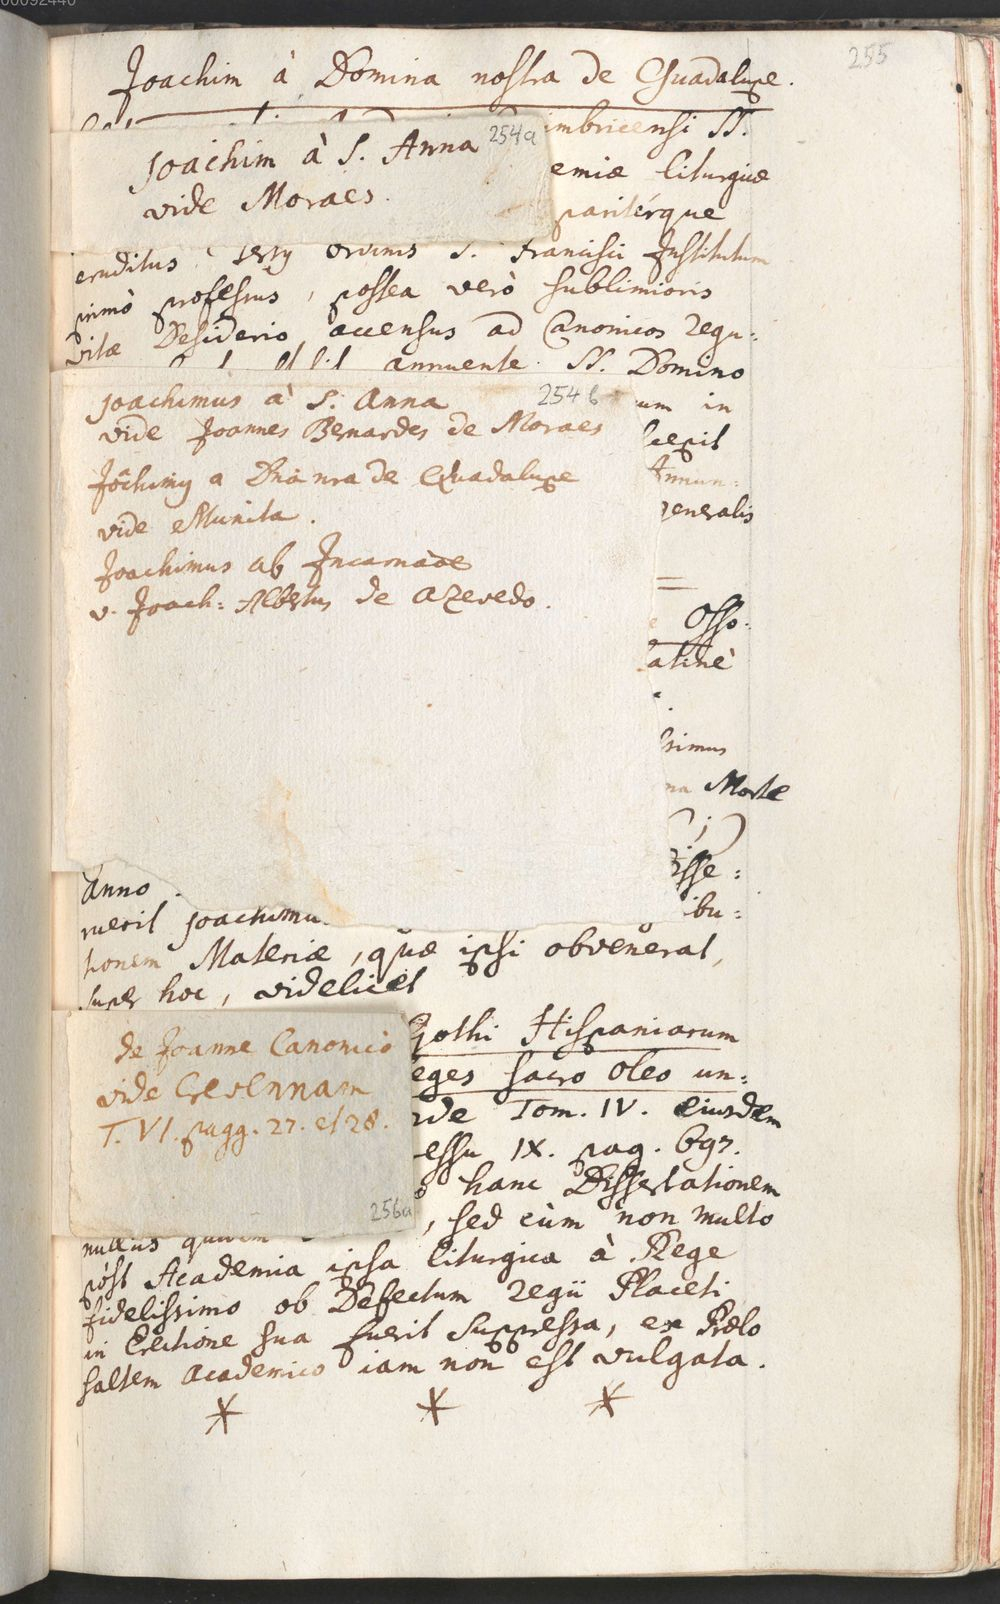 00092440
255
Joachim à Domina nostra de Guadalupe.
imbricensi SS.
254a
Joachim à S. Anna
vide Moraes.
emiae Liturgicae
paritérque
eruditus Tertii Ordinis S. Francisci Institutum
primò professus, postea verò sublimioris
vitae Desiderio accensus ad Canonicos Regu=
annuente SS. Domino
254b
Joachimus à S. Anna
vide Joannes Bernardes de Moraes
Joãchimus a Dna nra de Guadalupe
vide Munita.
Joachimus ab Incarnaõe
v. Joach: Albertus de Azevedo.
um in
cepit
Annun:
generalis
Osso.
atinè
simus
na Morte
Disse:
ibu:
Anno
ruerit Joachimu
tionem Materiae, quae ipsi obvenerat,
super hoc, videlicet
de Joanne Canonico
vide Cresennam
T. VI. pagg. 27. et 28.
256a
Gothi Hispaniarum
eges sacro Oleo un:
Tom. IV. eiusdem
essu IX. pag. 697.
hanc Dissertationem
nullus quidem , sed cùm non multo
pòst Academia ipsa Liturgica à Rege
fidelissimo ob Defectum Regii Placeti
in Erectione sua fuerit Suppressa, ex Praelo
saltem Academico iam non est vulgata.
* * *